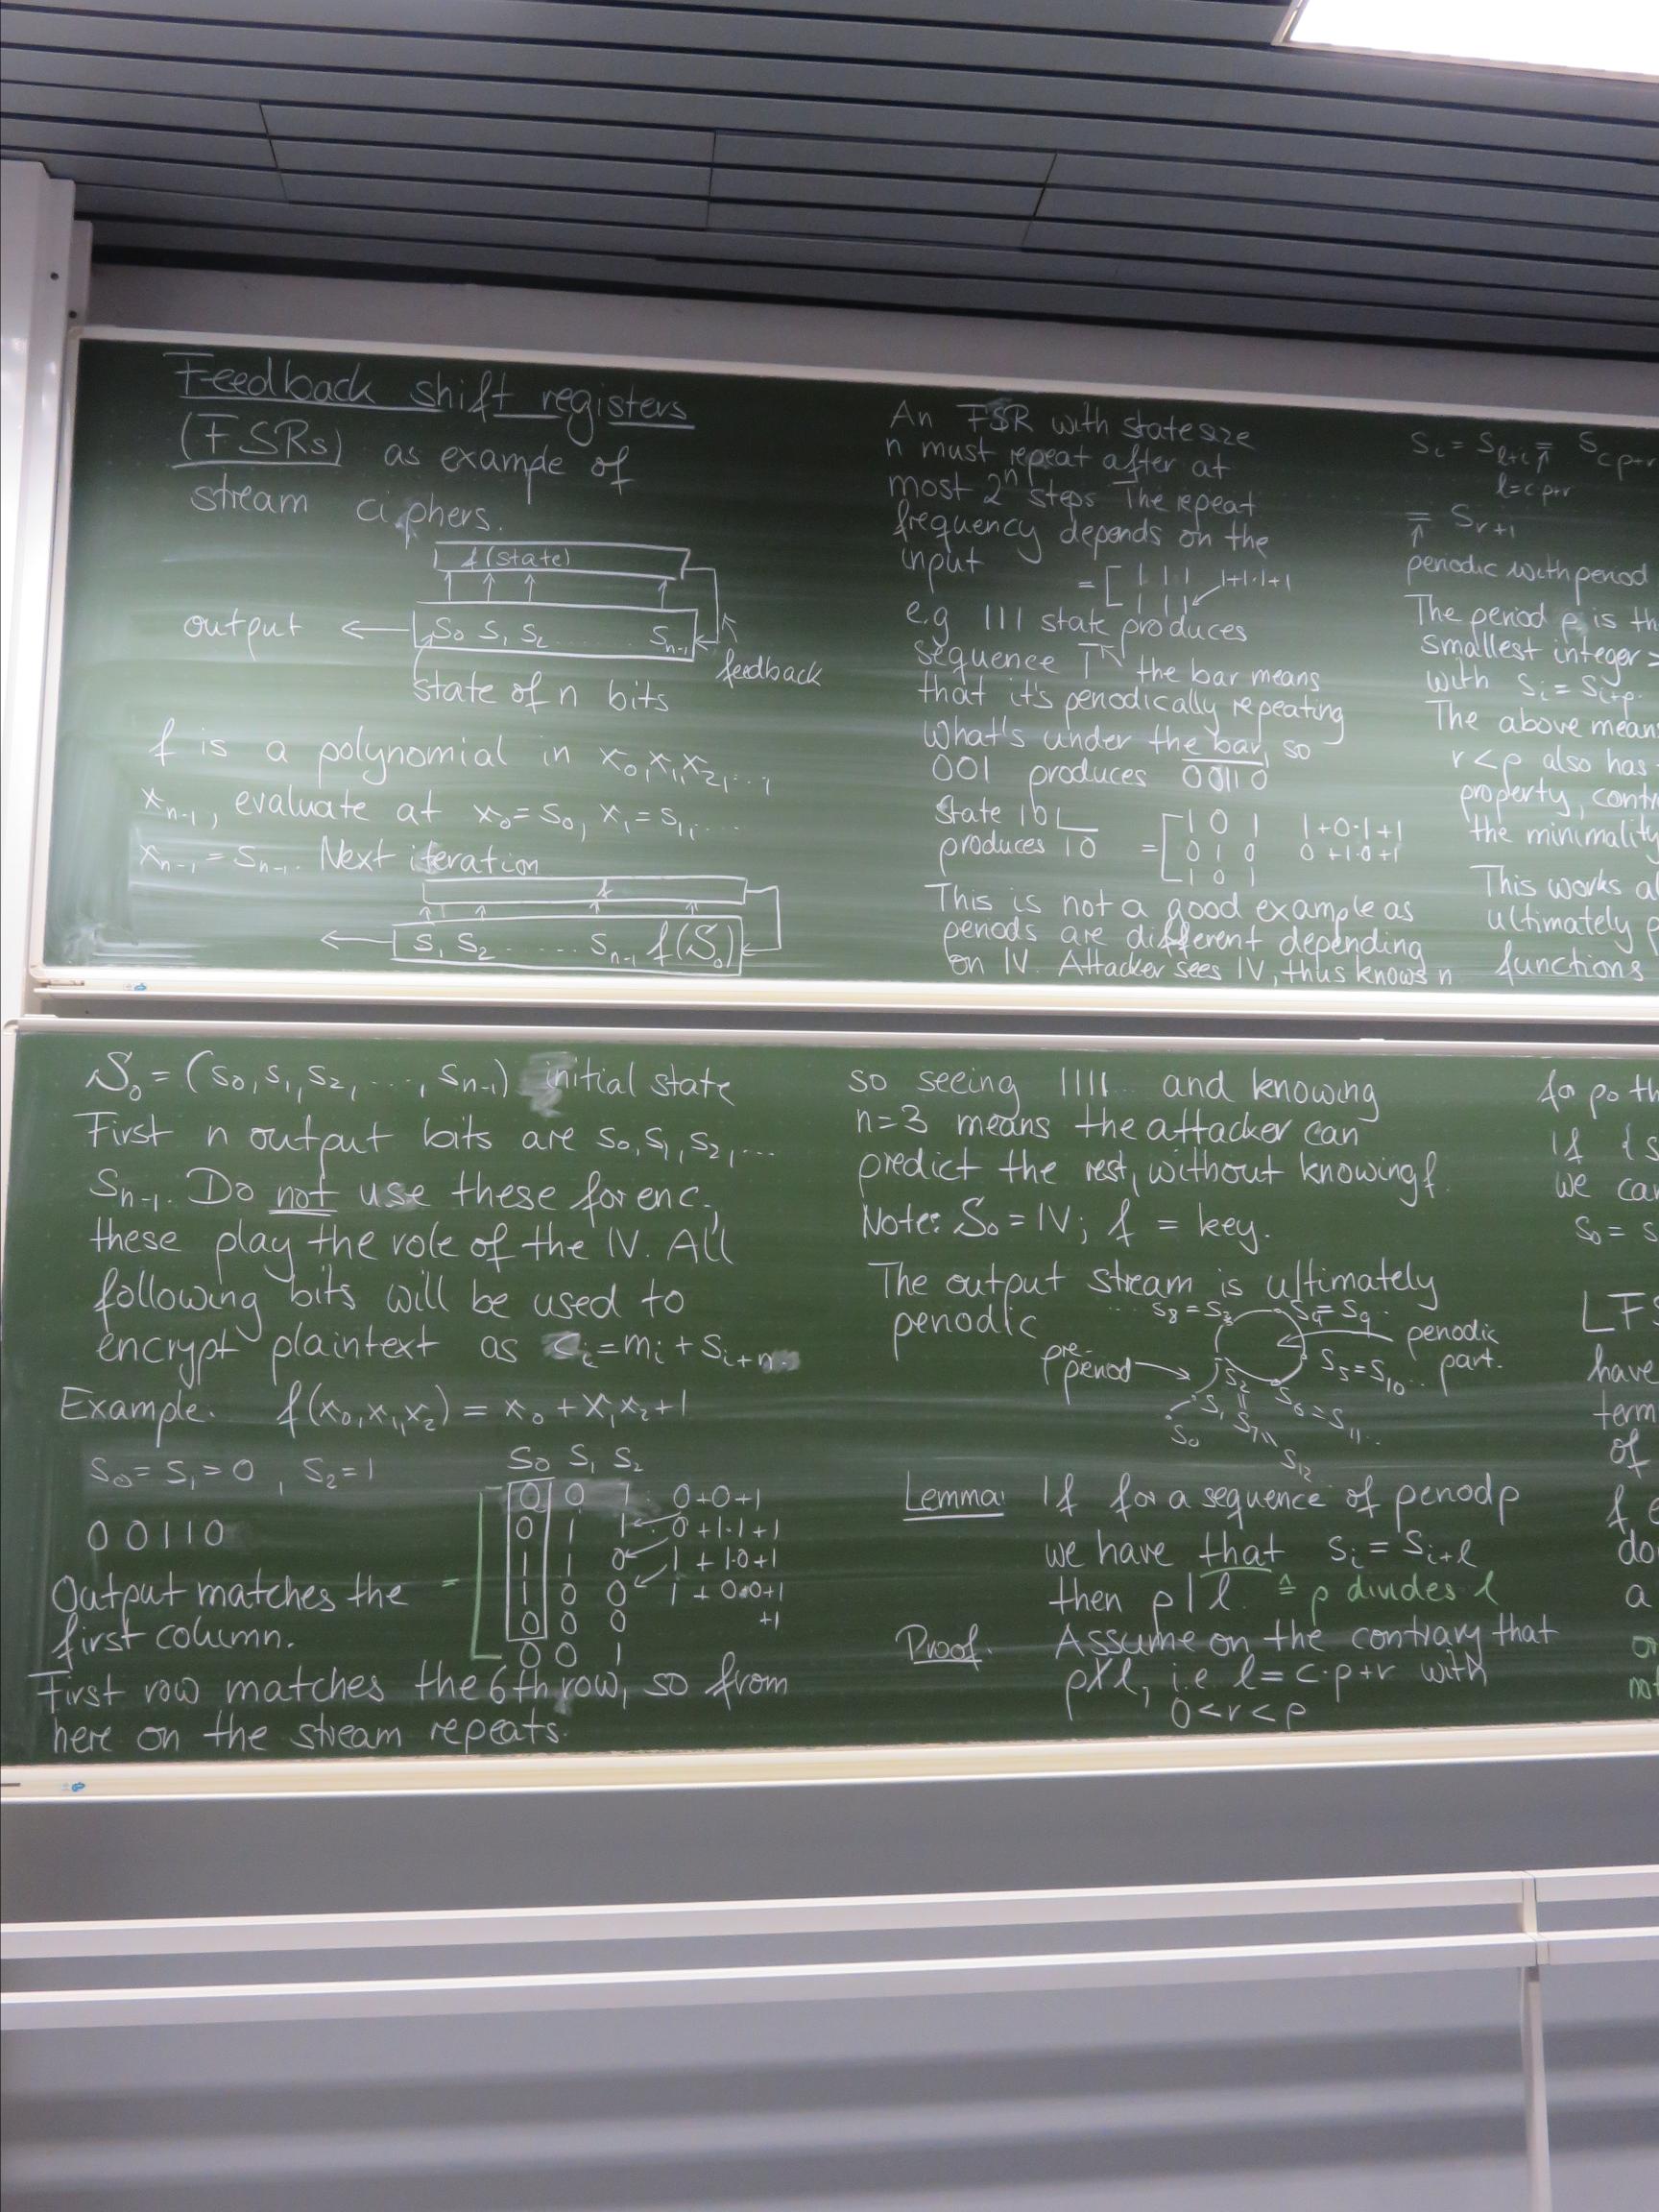 Feedback shift registers
(FSRs) as example of
stream ciphers.
f(state)
output ← S0 S1 S2 ...... Sn-1
feedback
state of n bits
f is a polynomial in x0, x1, x2, ...,
xn-1, evaluate at x0 = s0, x1 = s1, ...
xn-1 = sn-1. Next iteration
f
S1 S2 ....... Sn-1 f(S0)
An FSR with state size
n must repeat after at
most 2^n steps The repeat
frequency depends on the
input
= [ 1 1 1 1+1·1+1
1 1 1
e.g 111 state produces
sequence 1̅ the bar means
that it's periodically repeating
What's under the bar, so
001 produces 00110
State 101
produces 10 = [ 1 0 1 1+0·1+1
0 1 0 0+1·0+1
1 0 1
This is not a good example as
periods are different depending
on IV. Attacker sees IV, thus knows n
Si = Sl+i = Scp+r
l=cp+r
= Sr+1
periodic with period
The period p is
smallest integer
with si = si+p.
The above means
r<p also has
property,
the minimality
This works
ultimately
functions
S0 = (s0, s1, s2, ..., sn-1) initial state
First n output bits are s0, s1, s2, ...
sn-1. Do not use these for enc.,
these play the role of the IV. All
following bits will be used to
encrypt plaintext as ci = mi + si+n
Example. f(x0, x1, x2) = x0 + x1x2 + 1
s0 = s1 = 0, s2 = 1
00110
Output matches the
first column.
S0 S1 S2
0 0 1 0+0+1
0 1 1 0+1·1+1
1 1 0 1+1·0+1
1 0 0 1+0·0+1
0 0 0 +1
0 0 1
First row matches the 6th row, so from
here on the stream repeats.
so seeing 1111... and knowing
n=3 means the attacker can
predict the rest, without knowing f.
Note: S0 = IV; f = key.
The output stream is ultimately
periodic
... s8 = s3 s4 = s9 ...
periodic
part.
pre-
period
s5 = s10 ...
s6 = s11 ...
s2
=
s7
=
s12
s1
s0
Lemma: If for a sequence of period p
we have that si = si+l
then p | l. ≙ p divides l
Proof. Assume on the contrary that
p∤l, i.e. l = c·p+r with
0<r<p
If {s
we
s0 =
have
term
of
f
a